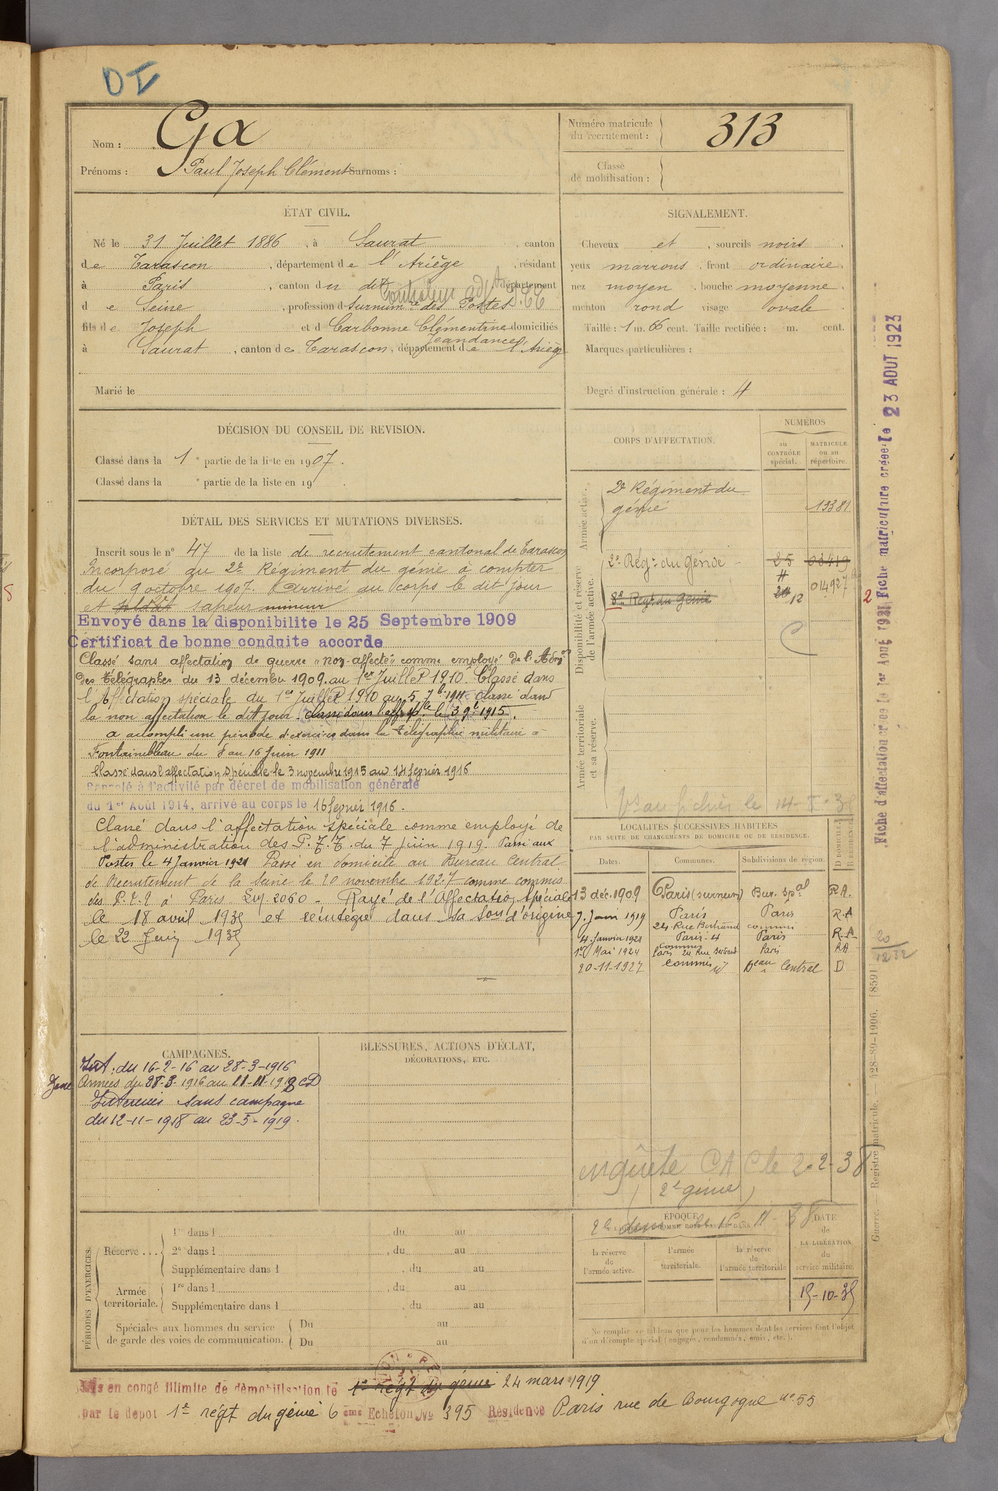 DI
Nom : Ga
Prénoms : Paul Joseph Clément Surnoms :
Numéro matricule du recrutement : 313
Classe de mobilisation :
ÉTAT CIVIL.
Né le 31 Juillet 1886, à Saurat, canton
de Tarascon, département de l'Ariège, résidant
à Paris, canton du dit, département
de Seine, profession de Surnumre des Postes
fils de Joseph et de Carbonne Clémentine domiciliés
Jeandance
à Saurat, canton de Tarascon, département de l'Ariège
Marié le
SIGNALEMENT.
Cheveux et, sourcils noirs
yeux marrons, front ordinaire
nez moyen, bouche moyenne
menton rond visage ovale
Taille : 1 m. 66 cent. Taille rectifiée : m. cent.
Marques particulières :
Degré d'instruction générale : 4
DÉCISION DU CONSEIL DE REVISION.
Classé dans la 1e partie de la liste en 1907.
Classé dans la e partie de la liste en 19
CORPS D'AFFECTATION.
NUMÉROS
AU CONTRÔLE spécial.
MATRICULE ou au répertoire.
Armée active.
2e Régiment du
génie 19381
Disponibilité et réserve de l'armée active.
2e Régt du Génie 25 03419
8e Regt du Génie 12
Armée territoriale et sa réserve.
DÉTAIL DES SERVICES ET MUTATIONS DIVERSES.
Inscrit sous le n° 47 de la liste de recrutement cantonal de Tarascon
Incorporé au 2e Régiment du génie à compter
du 9 octobre 1907. Arrivé au corps le dit jour
et soldat sapeur mineur
Envoyé dans la disponibilite le 25 Septembre 1909
Certificat de bonne conduite accorde
Classé sans affectation de guerre "non affecté" comme employé de l'Admon
des télégraphes du 13 décembre 1909 au 1er Juillet 1910. Classé dans
l'Affectation spéciale du 1er Juillet 1910 au 5 7b 1911 classé dans
la non affectation le dit jour. classé dans l'aff. sple le 3 9b 1915.
a accompli une période d'exercices dans la télégraphie militaire à
Fontainebleau du 8 au 16 Juin 1911
Classé dans l'affectation spéciale le 3 novembre 1915 au 14 février 1916
Rappelé à l'activité par décret de mobilisation générale
du 1er Août 1914, arrivé au corps le 16 février 1916.
Classé dans l'affectation spéciale comme employé de
l'administration des P.T.T. du 7 juin 1919. Passé aux
Postes le 4 Janvier 1921 Passé en domicile au Bureau Central
de Recrutement de la Seine le 20 novembre 1927 comme commis
des P.T.T. à Paris. Rayé de l'Affectation spéciale
le 18 avril 1935 et réintégré dans sa son d'origine
le 22 Juin 1935
LOCALITÉS SUCCESSIVES HABITÉES
PAR SUITE DE CHANGEMENTS DE DOMICILE OU DE RÉSIDENCE.
Dates. Communes. Subdivisions de région. D DOMICILE. R RÉSIDENCE.
13 déc. 1909 Paris (surnum) Bur. spal RA.
7 Juin 1919 Paris Paris R.A
24 Rue Bertrand commis
4 Janvier 1921 Paris. 4 Paris R.A
1er Mai 1924 Paris 24 Rue Paris RA
20-11-1927 Commis Beau Central D
CAMPAGNES.
Int. du 16-2-16 au 28-3-1916
Zone Armées du 28-3-1916 au 11-11-1918 CD
Intérieur sans campagne
du 12-11-1918 au 23-5-1919.
BLESSURES, ACTIONS D'ÉCLAT,
DÉCORATIONS, ETC.
enquête CA C le 2-2-38
2e génie
PÉRIODES D'EXERCICES.
Réserve ...
1re dans l du au
2e dans l du au
Supplémentaire dans l du au
Armée territoriale.
1re dans l du au
Supplémentaire dans l du au
Spéciales aux hommes du service
de garde des voies de communication.
Du au
Du au
ÉPOQUE
la réserve de l'armée active.
l'armée territoriale.
la réserve de l'armée territoriale
DATE de LA LIBÉRATION du service militaire
15-10-35
Ne remplir ce tableau que pour les hommes dont les services font l'objet
d'un décompte spécial (engagés, condamnés, omis, etc.).
Mis en congé illimité de démobilisation le 1er régt du génie 24 mars 1919
par le dépôt 1er régt du génie 6ème Echelon No 395 Résidence Paris rue de Bourgogne n° 55
Fiche d'affectation créée le 1er Août 1921 Fiche matriculaire créée le 23 AOUT 1923
Guerre. Registre matricule. 128-89-1906. [8591]